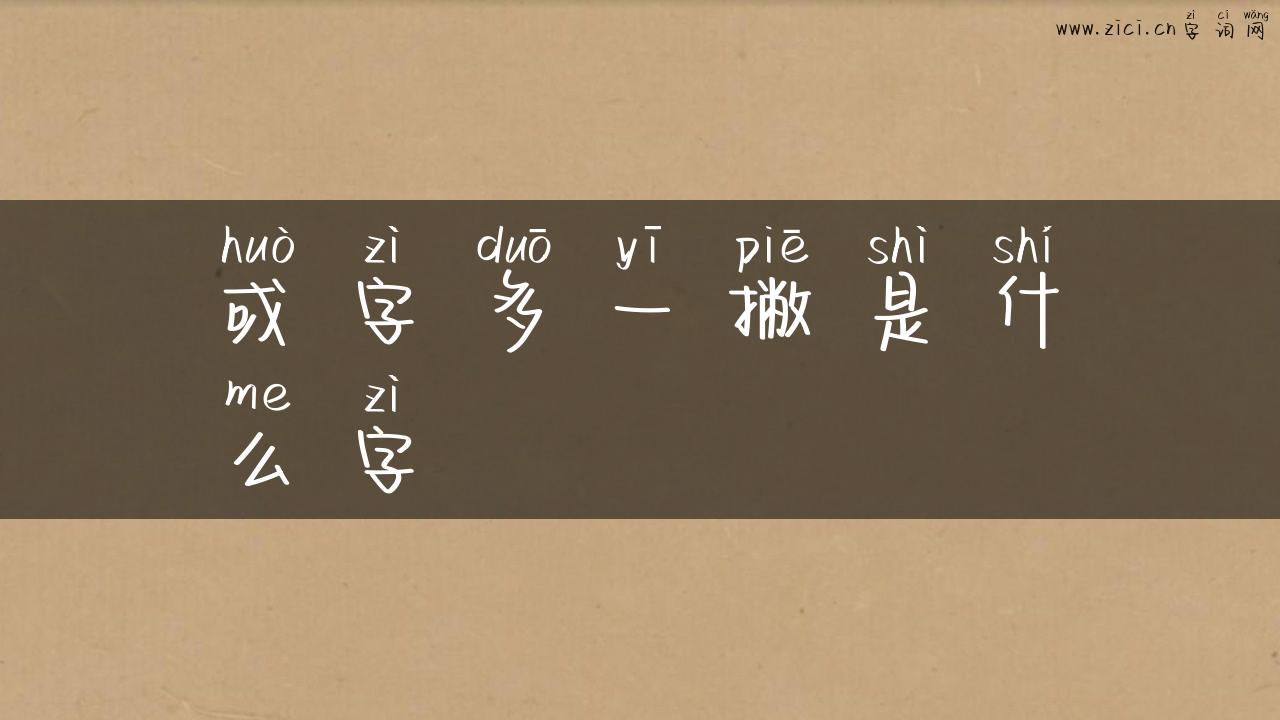 zì cí wǎng
www.zici.cn 字词网
huò zì duō yī piē shì shí
或字多一撇是什
me zì
么字